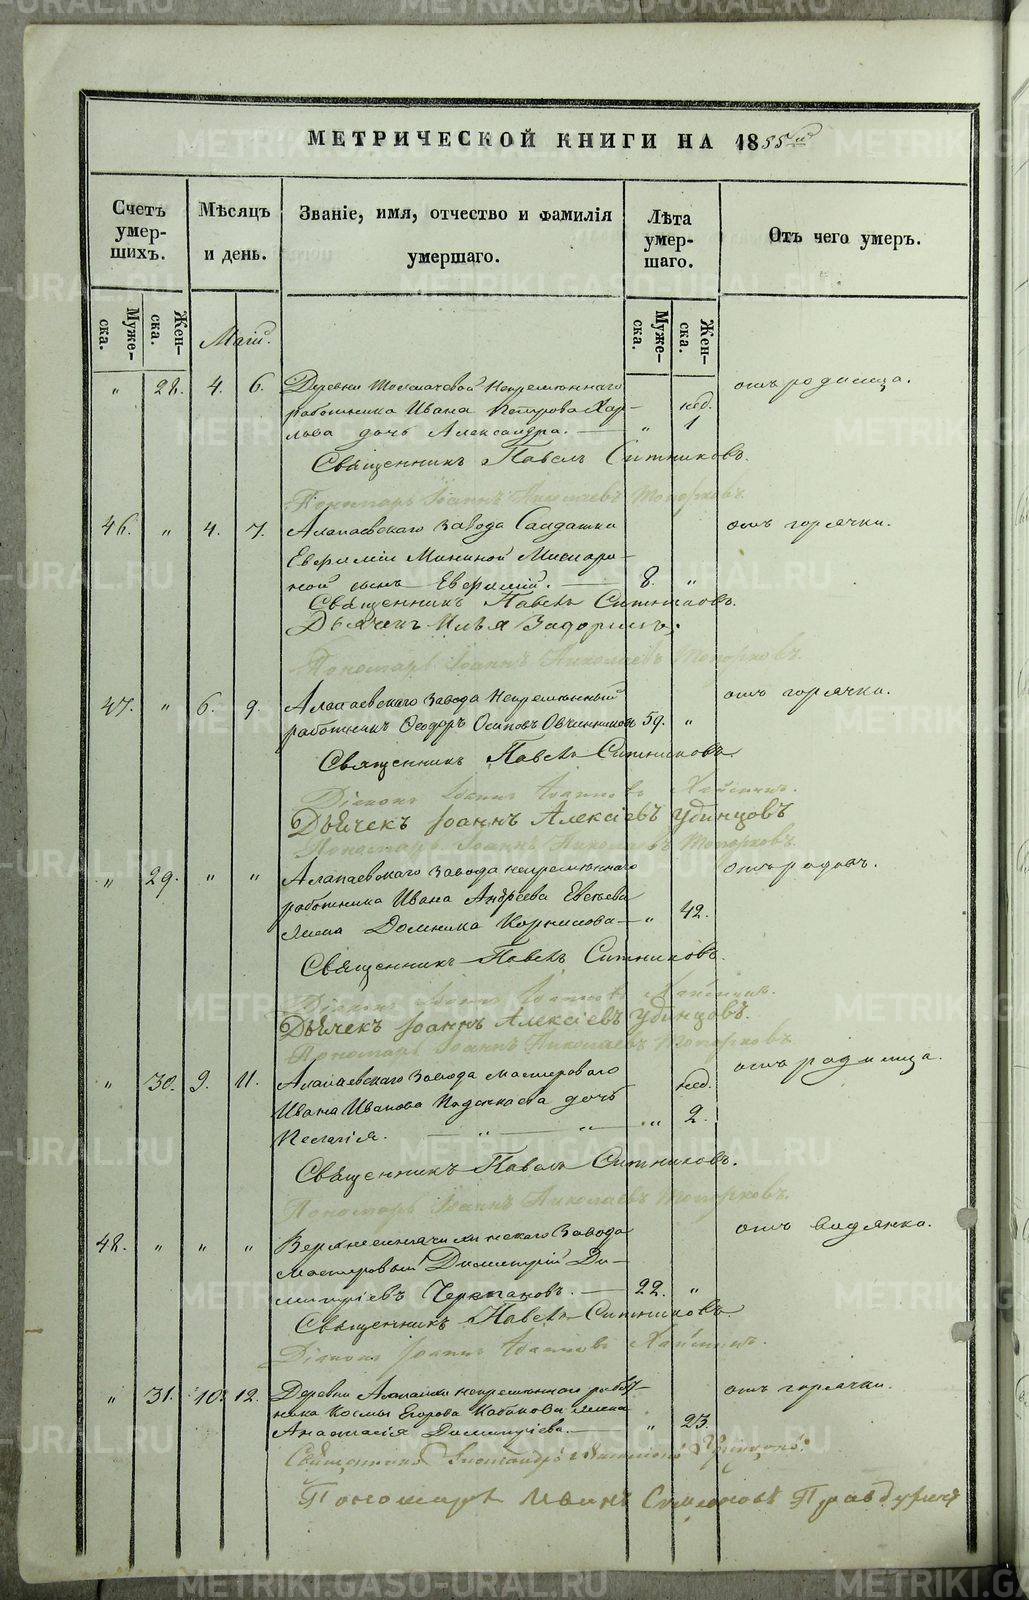 МЕТРИЧЕСКОЙ КНИГИ НА 1855й
Счетъ умер-шихъ.
Мѣсяцъ и день.
Званіе, имя, отчество и фамилія умершаго.
Лѣта умер-шаго.
Отъ чего умеръ.
Муже-ска.
Жен-ска.
Маій.
Муже-ска.
Жен-ска.
" 28. 4. 6. Деревни Толмачевой Непремѣннаго отъ родимца.
работника Ивана Петрова Хар- нед.
лова дочь Александра. — " 1
Священникъ Павелъ Ситниковъ.
Пономарь Іоаннъ Николаевъ Топорковъ.
46. " 4. 7. Алапаевскаго завода Солдатки отъ горячки.
Евфиміи Мининой
ной сынъ Евфимій. — 8. "
Священникъ Павелъ Ситниковъ.
Дьячекъ Илья Задоринъ.
Пономарь Іоаннъ Николаевъ Топорковъ.
47. " 6. 9. Алапаевскаго завода Непремѣнный отъ горячки.
работникъ Ѳеодоръ Осиповъ Овчинниковъ 59. "
Священникъ Павелъ Ситниковъ.
Діаконъ Іоаннъ Іоанновъ
Дьячекъ Іоаннъ Алексіевъ Удинцовъ
Пономарь Іоаннъ Николаевъ Топорковъ.
" 29. " " Алапаевскаго завода непремѣннаго отъ родовъ.
работника Ивана Андреева Евсѣева
жена Домника Корнилова — " 42.
Священникъ Павелъ Ситниковъ.
Діаконъ Іоаннъ Іоанновъ
Дьячекъ Іоаннъ Алексіевъ Удинцовъ.
Пономарь Іоаннъ Николаевъ Топорковъ.
" 30. 9. 11. Алапаевскаго завода мастероваго нед. отъ родимца.
Ивана Иванова дочь
Пелагія. — " — " — " 2.
Священникъ Павелъ Ситниковъ.
Пономарь Іоаннъ Николаевъ Топорковъ.
48. " " " Верхнесинячихинскаго завода отъ водянки.
мастеровый Димитрій Ди-
митріевъ Черепановъ. — 22. "
Священникъ Павелъ Ситниковъ.
Діаконъ Іоаннъ Іоанновъ
" 31. 10. 12. Деревни Алапаихи непремѣннаго работ- отъ горячки.
ника Космы Егорова Кабакова жена
Анастасія Димитріева. — " 23.
Священникъ Александръ
Пономарь Иванъ Симоновъ